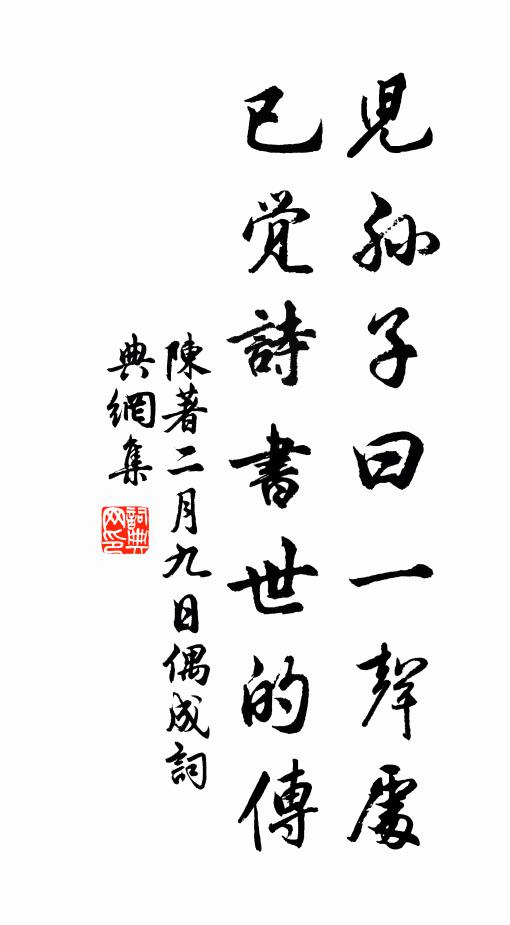 児孫子曰一聲處
已覚詩書世的傳
陳著二月九日偶成詞
典網集
詞典網印